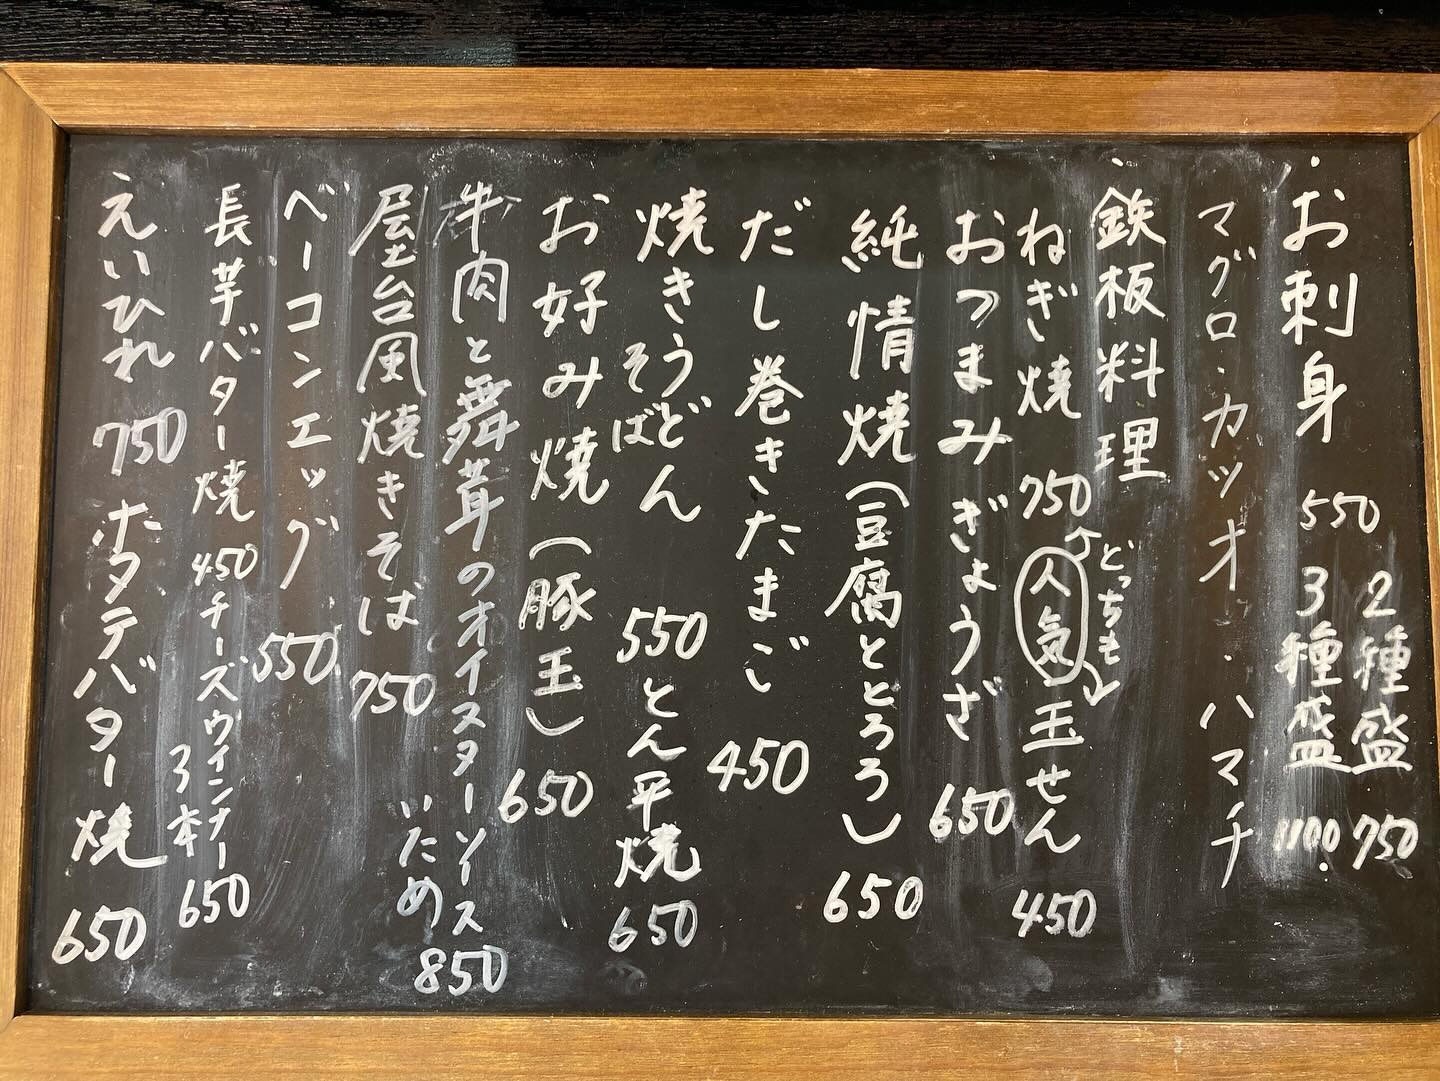 お刺身 550 2種盛 750
3種盛 1100
マグロ・カツオ・ハマチ
鉄板料理
ねぎ焼 750 人気 どっちも 玉せん 450
おつまみぎょうざ 650
純情焼(豆腐ととろろ) 650
だし巻きたまご 450
焼きうどん そば 550 とん平焼 650
お好み焼(豚玉) 650
牛肉と舞茸のオイスターソース
いため 850
屋台風焼きそば 750
ベーコンエッグ 550
長芋バター焼 450 チーズウインナー
3本 650
えいひれ 750 ホタテバター焼 650